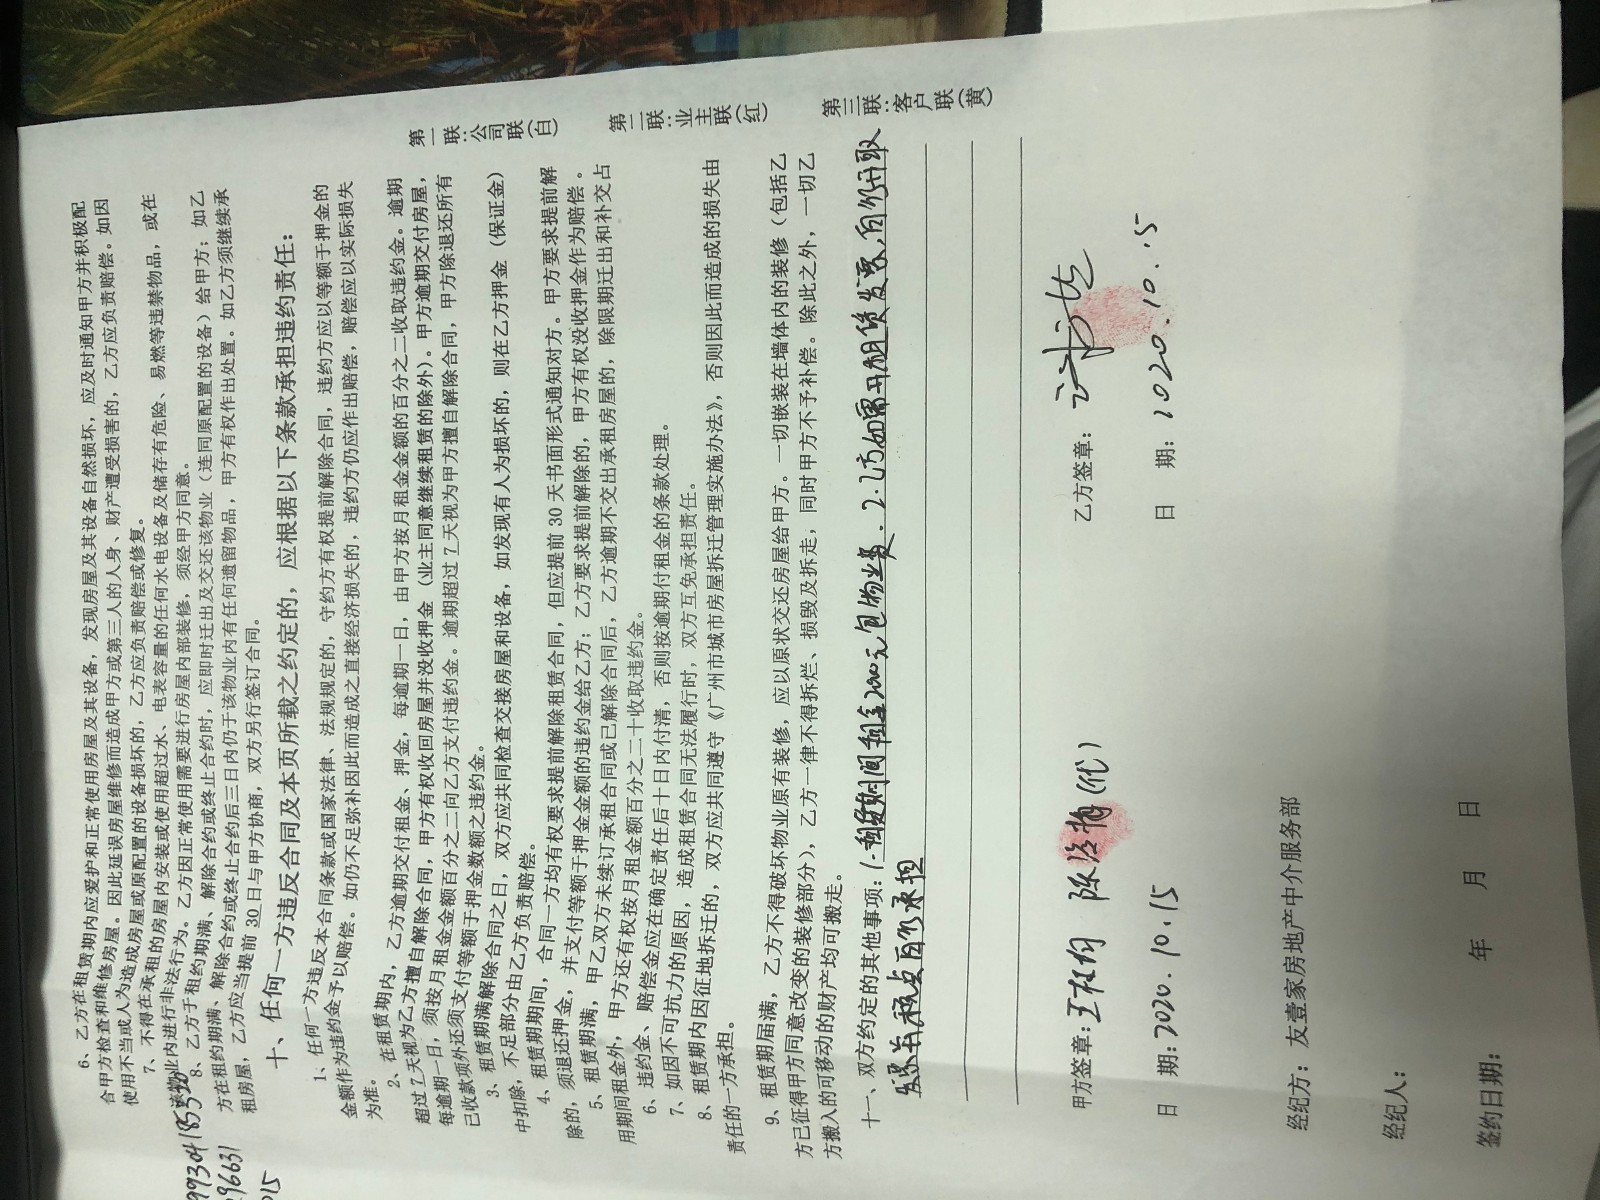 6、乙方在租赁期内应爱护和正常使用房屋及其设备，发现房屋及其设备自然损坏，应及时通知甲方并积极配
合甲方检查和维修房屋。因此延误房屋维修而造成甲方或第三人的人身、财产遭受损害的，乙方应负责赔偿。如因
使用不当或人为造成房屋或原配置的设备损坏的，乙方应负责赔偿或修复。
7、不得在承租的房屋内安装或使用超过水、电表容量的任何水电设备及储存有危险、易燃等违禁物品，或在
该物业内进行非法行为。乙方因正常使用需要进行房屋内部装修，须经甲方同意。
8、乙方于租约期满、解除合约或终止合约时，应即时迁出及交还该物业（连同原配置的设备）给甲方；如乙
方在租约期满、解除合约或终止合约后三日内仍于该物业内有任何遗留物品，甲方有权作出处置。如乙方须继续承
租房屋，乙方应当提前 30 日与甲方协商，双方另行签订合同。
十、任何一方违反合同及本页所载之约定的，应根据以下条款承担违约责任：
1、任何一方违反本合同条款或国家法律、法规规定的，守约方有权提前解除合同，违约方应以等额于押金的
金额作为违约金予以赔偿。如仍不足弥补因此而造成之直接经济损失的，违约方仍应作出赔偿，赔偿应以实际损失
为准。
2、在租赁期内，乙方逾期交付租金、押金，每逾期一日，由甲方按月租金金额的百分之二收取违约金。逾期
超过 7 天视为乙方擅自解除合同，甲方有权收回房屋并没收押金（业主同意继续租赁的除外）。甲方逾期交付房屋，
每逾期一日，须按月租金金额百分之二向乙方支付违约金。逾期超过 7 天视为甲方擅自解除合同，甲方除退还所有
已收款项外还须支付等额于押金数额之违约金。
3、租赁期满解除合同之日，双方应共同检查交接房屋和设备，如发现有人为损坏的，则在乙方押金（保证金）
中扣除，不足部分由乙方负责赔偿。
4、租赁期期间，合同一方均有权要求提前解除租赁合同，但应提前 30 天书面形式通知对方。甲方要求提前解
除的，须退还押金，并支付等额于押金金额的违约金给乙方；乙方要求提前解除的，甲方有权没收押金作为赔偿。
5、租赁期满，甲乙双方未续订承租合同或已解除合同后，乙方逾期不交出承租房屋的，除限期迁出和补交占
用期间租金外，甲方还有权按月租金额百分之二十收取违约金。
6、违约金、赔偿金应在确定责任后十日内付清，否则按逾期付租金的条款处理。
7、如因不可抗力的原因，造成租赁合同无法履行时，双方互免承担责任。
8、租赁期内因征地拆迁的，双方应共同遵守《广州市城市房屋拆迁管理实施办法》，否则因此而造成的损失由
责任的一方承担。
9、租赁期届满，乙方不得破坏物业原有装修，应以原状交还房屋给甲方。一切嵌装在墙体内的装修（包括乙
方已征得甲方同意改变的装修部分），乙方一律不得拆烂、损毁及拆走，同时甲方不予补偿。除此之外，一切乙
方搬入的可移动的财产均可搬走。
十一、双方约定的其他事项：1.租赁期间租金2000元包物业费. 2.乙方如需开租赁发票，自行开取
发票并税点自行承担
甲方签章：
陈 (代)
乙方签章：
日 期：2020.10.15
日 期：2020.10.15
经纪方：友壹家房地产中介服务部
经纪人：
签约日期： 年 月 日
第一联：公司联（白）
第二联：业主联（红）
第三联：客户联（黄）
99304185320
96631
015